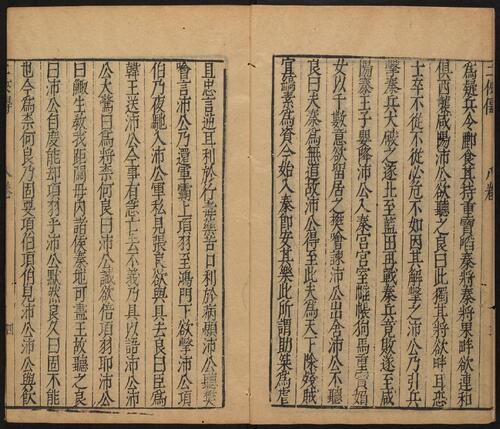 為疑兵令酈食其持重寶啗秦將秦將果畔欲連和
俱西襲咸陽沛公欲聽之良曰此獨其將欲畔耳恐
士卒不從不從必危不如因其解擊之沛公乃引兵
擊秦兵大破之遂北至藍田再戰秦兵竟敗遂至咸
陽秦王子嬰降沛公入秦宮宮室帷帳狗馬重寶婦
女以千數意欲留居之樊噲諫沛公出舍沛公不聽
良曰夫秦為無道故沛公得至此夫為天下除殘賊
宜縞素為資今始入秦即安其樂此所謂助桀為虐
且忠言逆耳利於行毒藥苦口利於病願沛公聽樊
噲言沛公乃還軍霸上項羽至鴻門下欲擊沛公項
伯乃夜馳入沛公軍私見張良欲與具去良曰臣為
韓王送沛公今事有急亡去不義乃具以語沛公沛
公大驚曰為將柰何良曰沛公誠欲倍項羽耶沛公
曰鯫生敎我距關毋內諸侯秦地可盡王故聽之良
曰沛公自度能却項羽乎沛公默然良久曰固不能
也今為柰何良乃固要項伯項伯見沛公沛公與飲
八卷
四